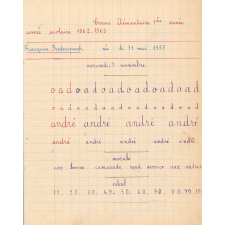 Cours élémentaire 1ère année
année scolaire 1962-1963
Françoise née le 31 mai 1955
mercredi 7 novembre
o a d o a d o a d o a d o a d
andré andré andré andré
andré andré andré andré andré
morale
une bonne camarade rend service aux autres
calcul
10. 20. 30. 40. 50. 60. 70. 80. 90.